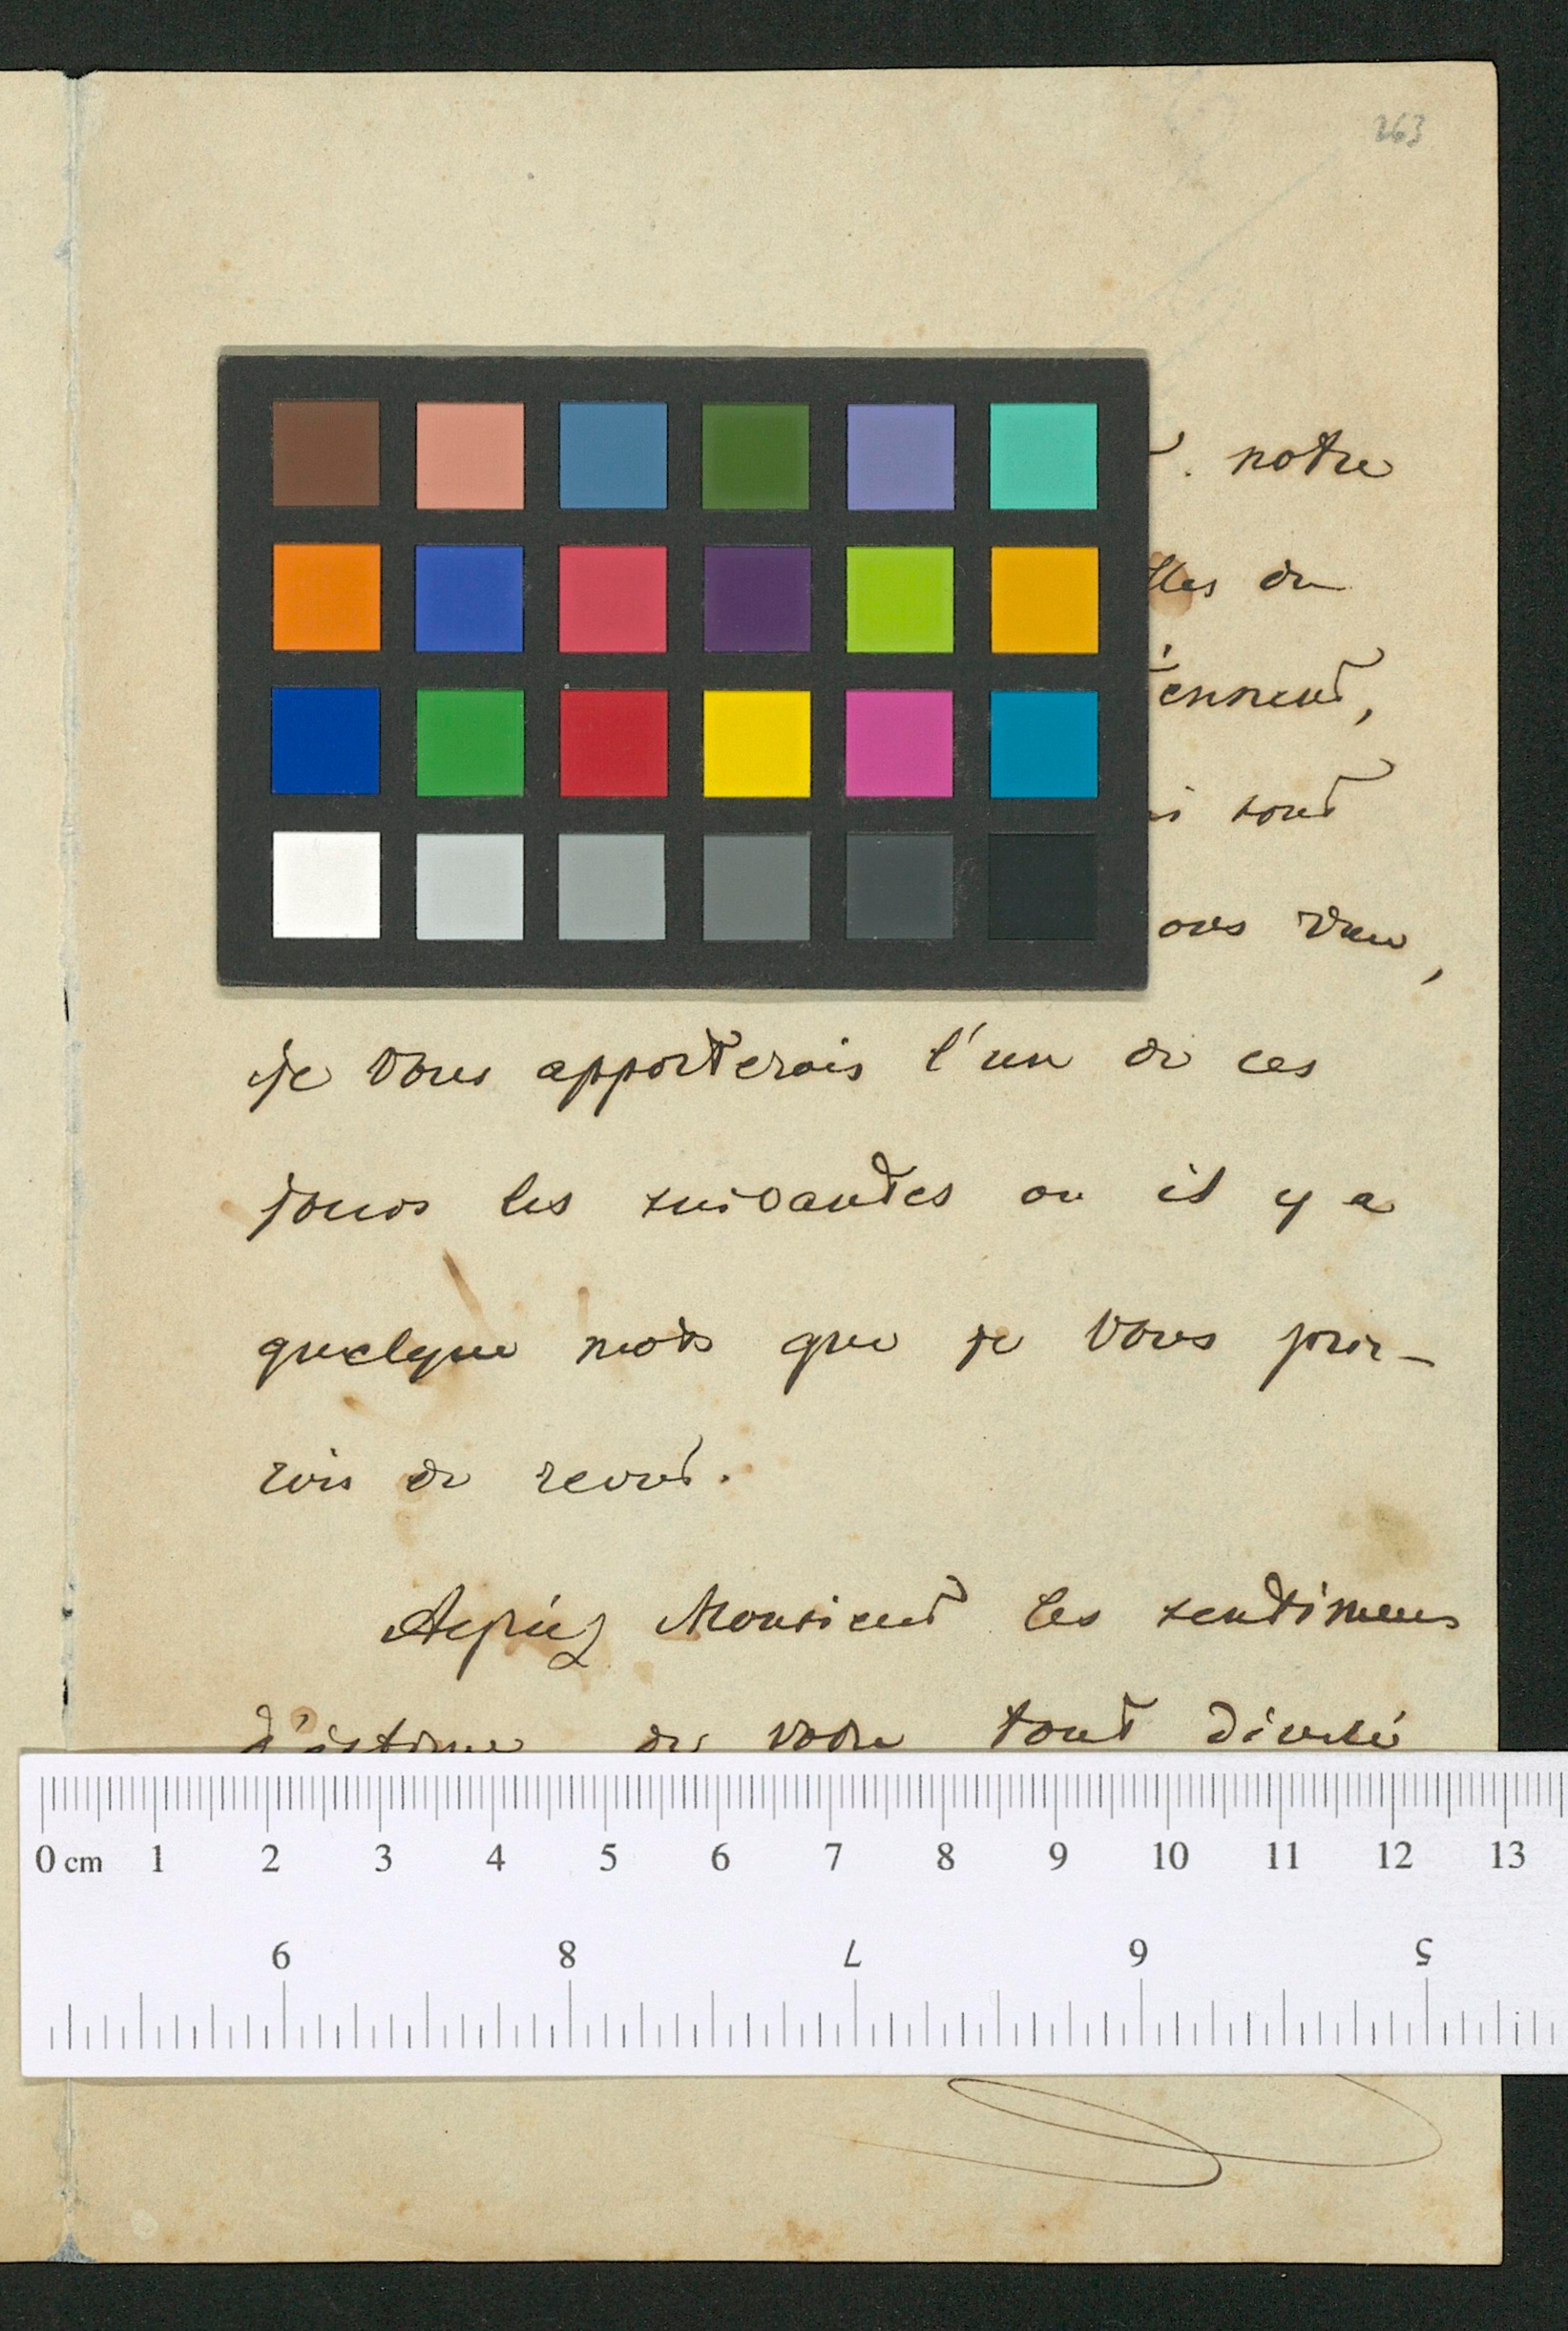 263
notre
de
sont
vous vu,
je vous apporterais l'un de ces
jours les suivantes ou il y a
quelque mots que je vous prie-
rais de revoir.
Agréez Monsieur les sentimens
d'estime de votre tout dévoué
0 cm 1 2 3 4 5 6 7 8 9 10 11 12 13
9 8 7 6 5